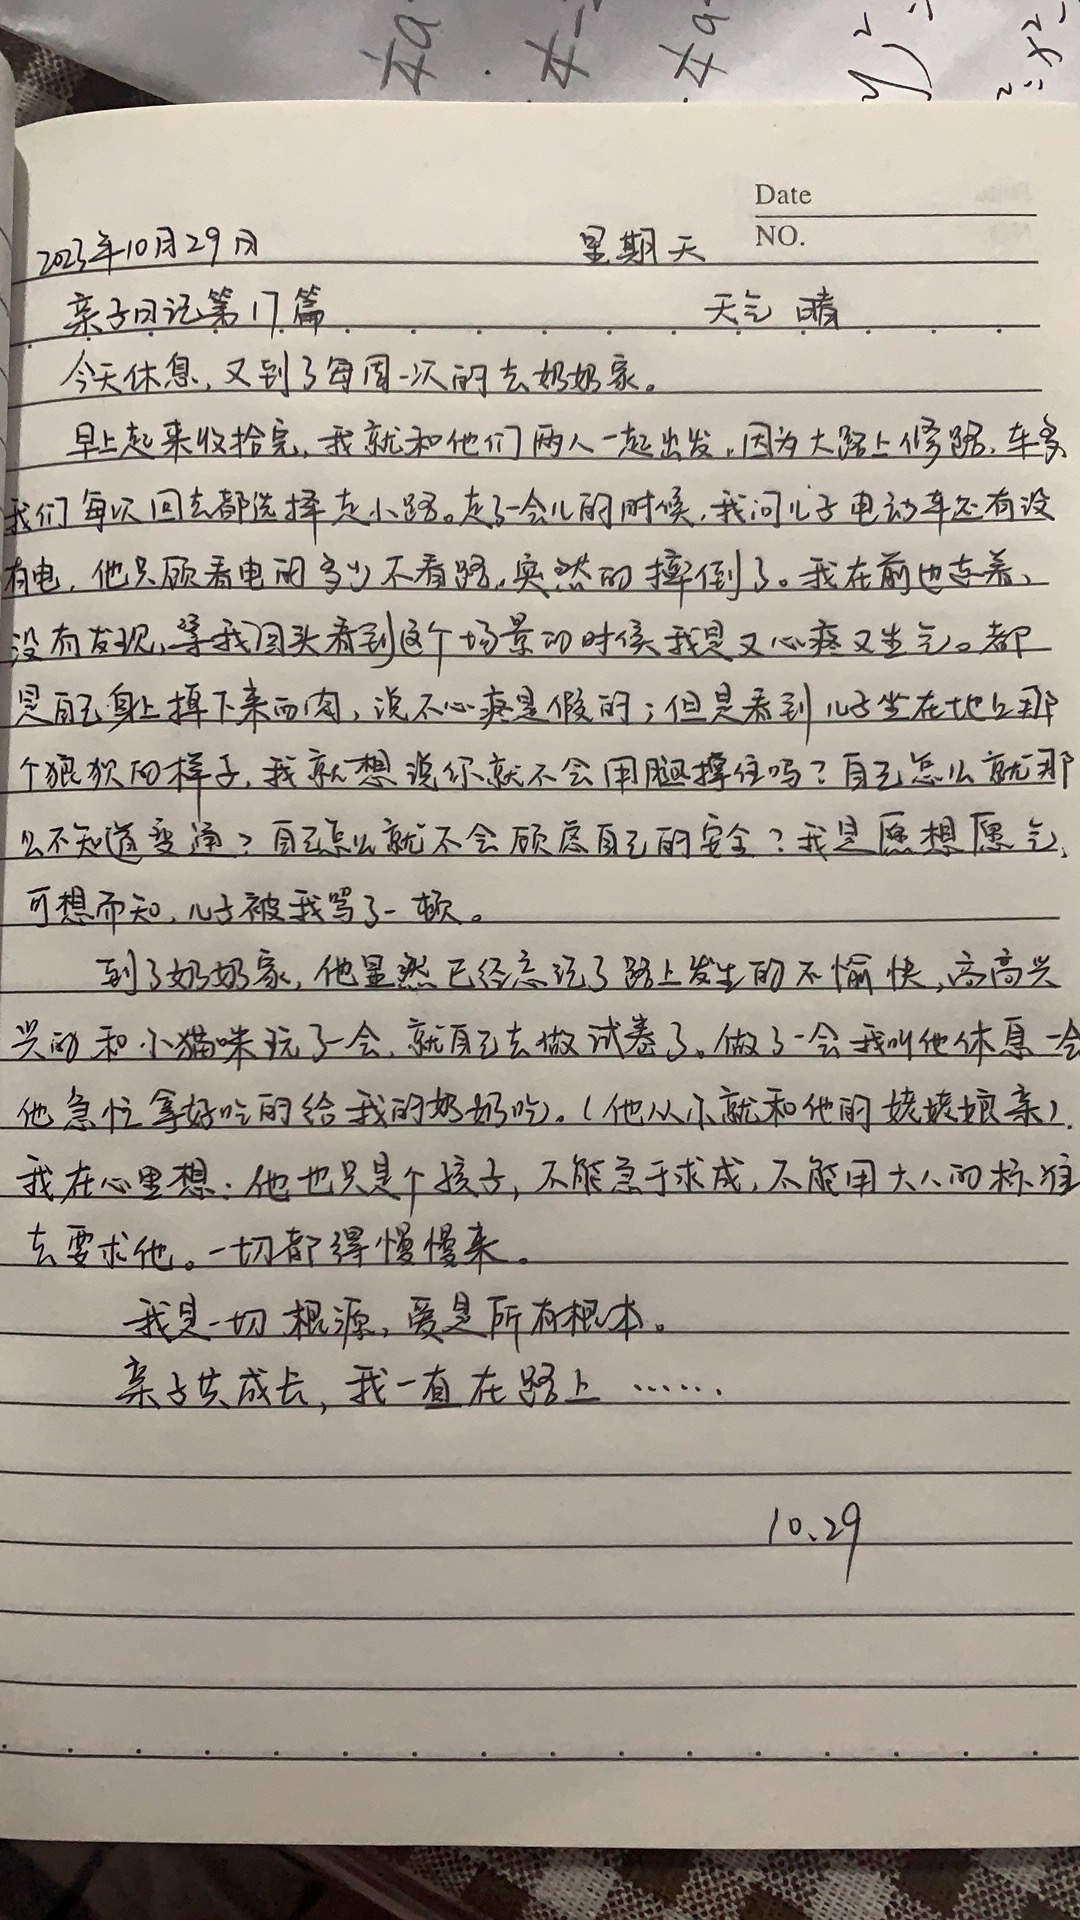 Date
NO.
2023年10月29日 星期天
亲子日记第17篇 天气 晴
今天休息，又到了每周一次的去奶奶家。
早上起来收拾完，我就和他们两人一起出发，因为大路上修路，车多
我们每次回去都选择走小路。走了一会儿的时候，我问儿子电动车还有没
有电，他只顾看电的多少不看路，突然的摔倒了。我在前边走着，
没有发现，等我回头看到这个场景的时候我是又心疼又生气。都
是自己身上掉下来的肉，说不心疼是假的；但是看到儿子坐在地上那
个狼狈的样子，我就想说你就不会用腿撑住吗？自己怎么就那
么不知道变通？自己怎么就不会顾虑自己的安全？我是愿想愿气，
可想而知，儿子被我骂了一顿。
到了奶奶家，他显然已经忘记了路上发生的不愉快，高高兴
兴的和小猫咪玩了一会，就自己去做试卷了。做了一会我叫他休息一会
他急忙拿好吃的给我的奶奶吃。（他从小就和他的姥姥娘亲）.
我在心里想：他也只是个孩子，不能急于求成，不能用大人的标准
去要求他。一切都得慢慢来。
我是一切根源，爱是所有根本。
亲子共成长，我一直在路上……
10.29